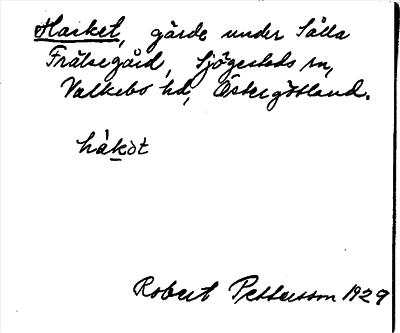 Haiket, gärde under Sålla
Frälsegård, Sjögesteds sn,
Valkebo hd, Östergötland.
håkot
Robert Pettersson 1929